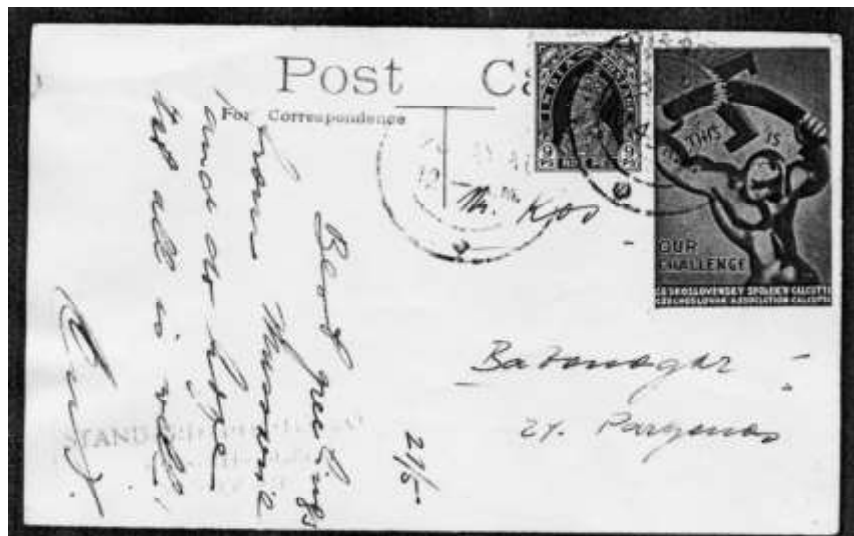 Post
For Correspondence
INDIA POSTAGE
9 PS 9 PS
THIS IS
OUR
CHALLENGE
ČESKOSLOVENSKÝ SPOLEK V CALCUTTĚ
CZECHOSLOVAK ASSOCIATION CALCUTTA
Kos
Batanagar
24. Parganas
27/5
Best greetings
from Mussoorie
and do hope
that all is well!